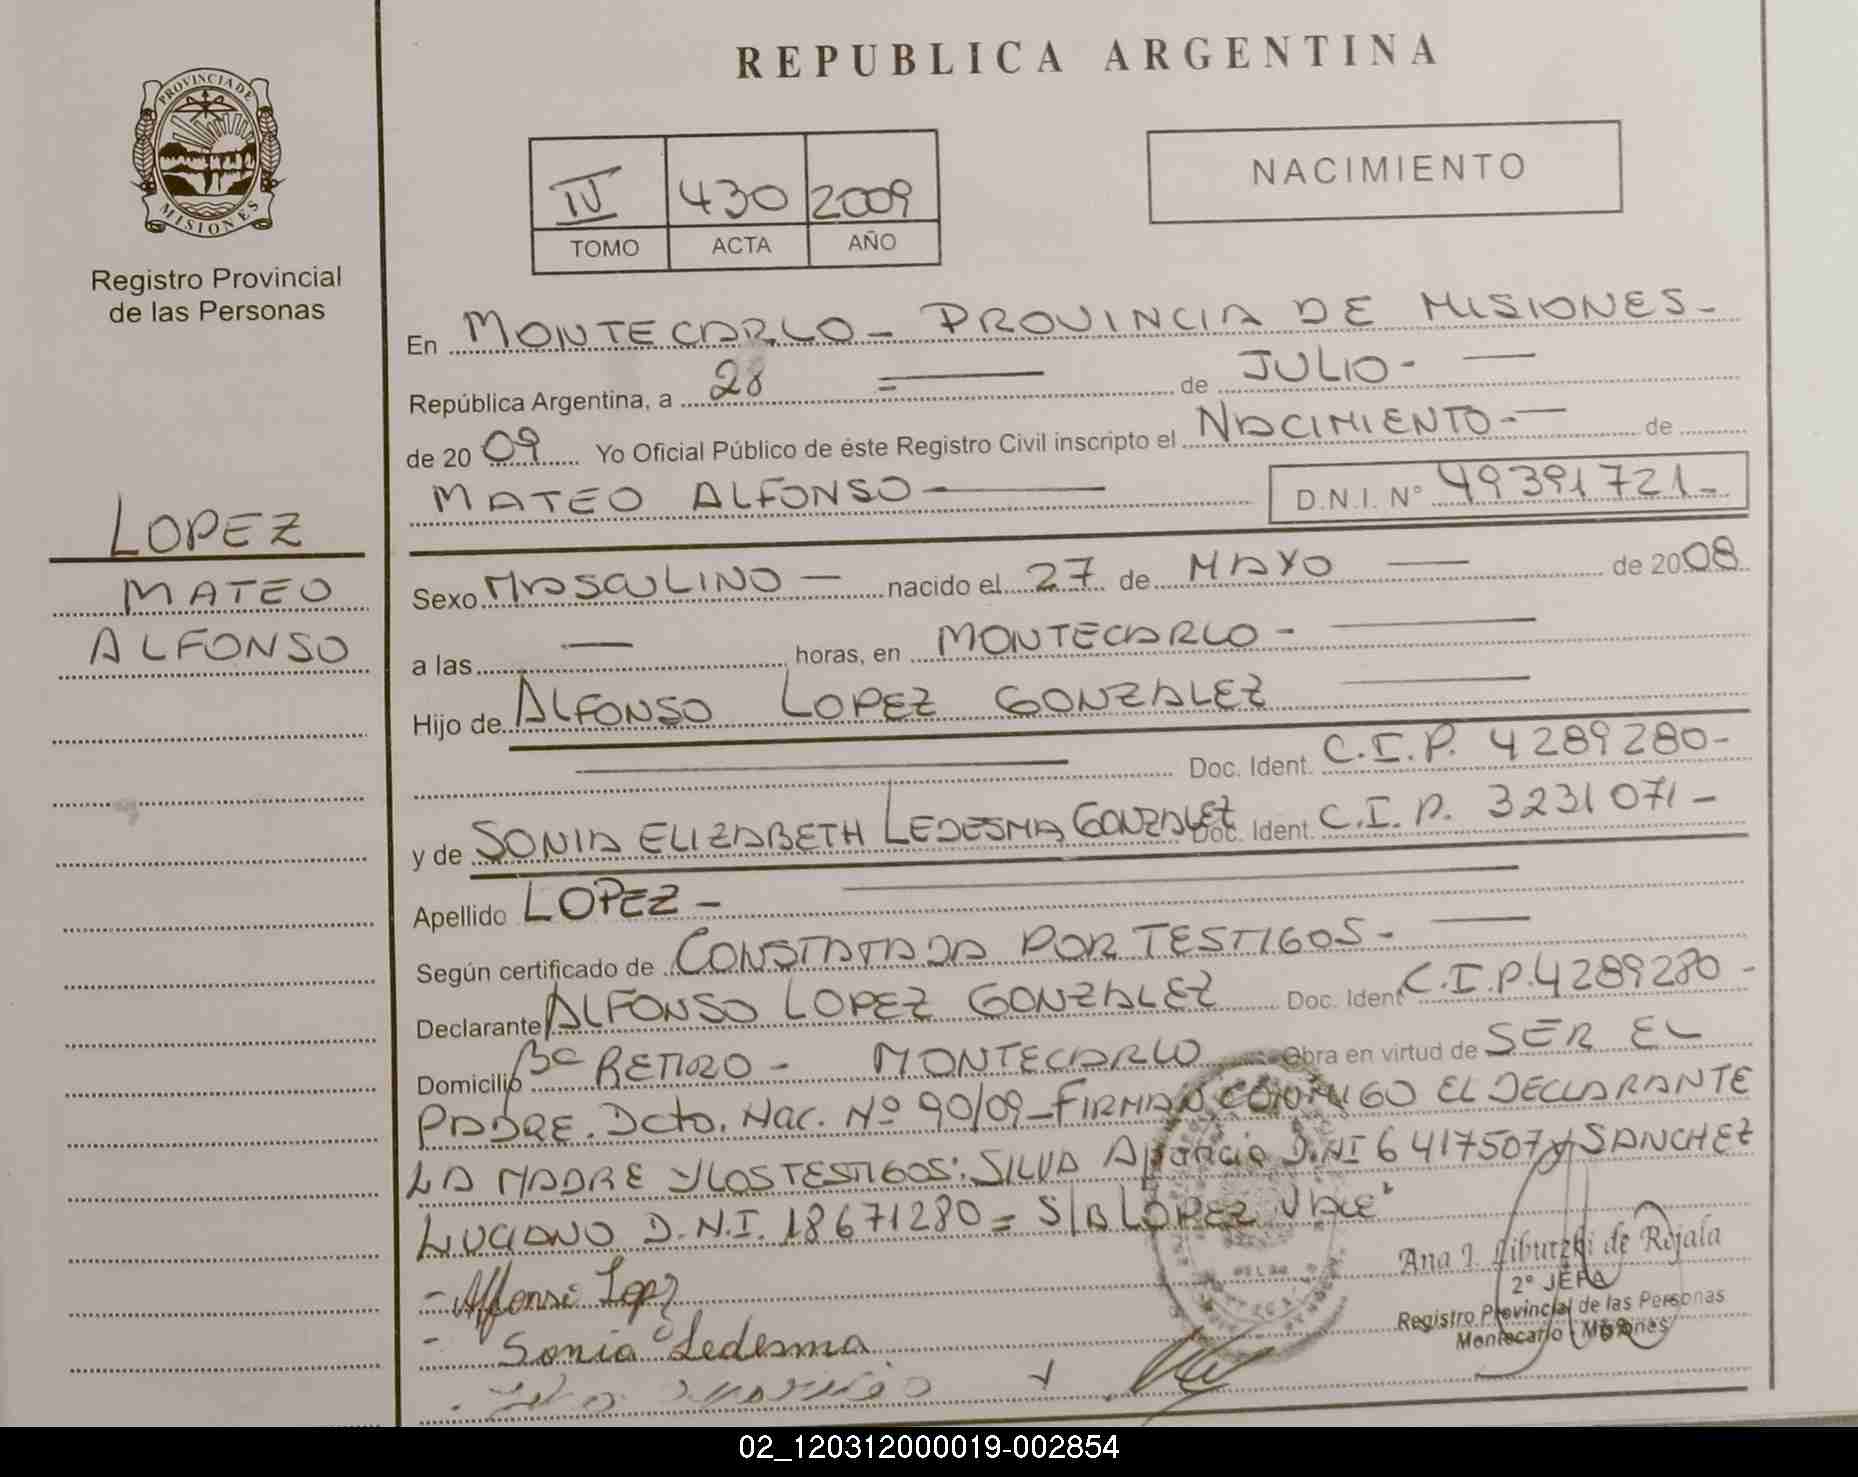 PROVINCIA DE MISIONES
Registro Provincial
de las Personas
LOPEZ
MATEO
ALFONSO
REPUBLICA ARGENTINA
IV 430 2009
TOMO ACTA AÑO
NACIMIENTO
En MONTECARLO - PROVINCIA DE MISIONES -
República Argentina, a 28 = de JULIO -
de 2009 Yo Oficial Público de éste Registro Civil inscripto el NACIMIENTO - de
MATEO ALFONSO D.N.I. N° 49391721 -
Sexo MASCULINO - nacido el 27 de MAYO de 2008
a las - horas, en MONTECARLO -
Hijo de ALFONSO LOPEZ GONZALEZ
Doc. Ident. C.I.P. 4289280 -
y de SONIA ELIZABETH LEDESMA GONZALEZ Doc. Ident. C.I.P. 3231071 -
Apellido LOPEZ -
Según certificado de CONSTATADA POR TESTIGOS -
Declarante ALFONSO LOPEZ GONZALEZ Doc. Ident C.I.P. 4289280 -
Domicilio Bº RETIRO - MONTECARLO Obra en virtud de SER EL
PADRE. Dcto. Nac. Nº 90/09 - FIRMAN CONMIGO EL DECLARANTE
LA MADRE Y LOS TESTIGOS: SILVA Aparicio D.NI 6417507 y SANCHEZ
LUCIANO D.N.I. 18671280 = S/B LOPEZ VALE
- Alfonso Lopez
- Sonia Ledesma
Ana I. de Rejala
2° JEFA
Registro Provincial de las Personas
Montecarlo - Misiones
02_120312000019-002854